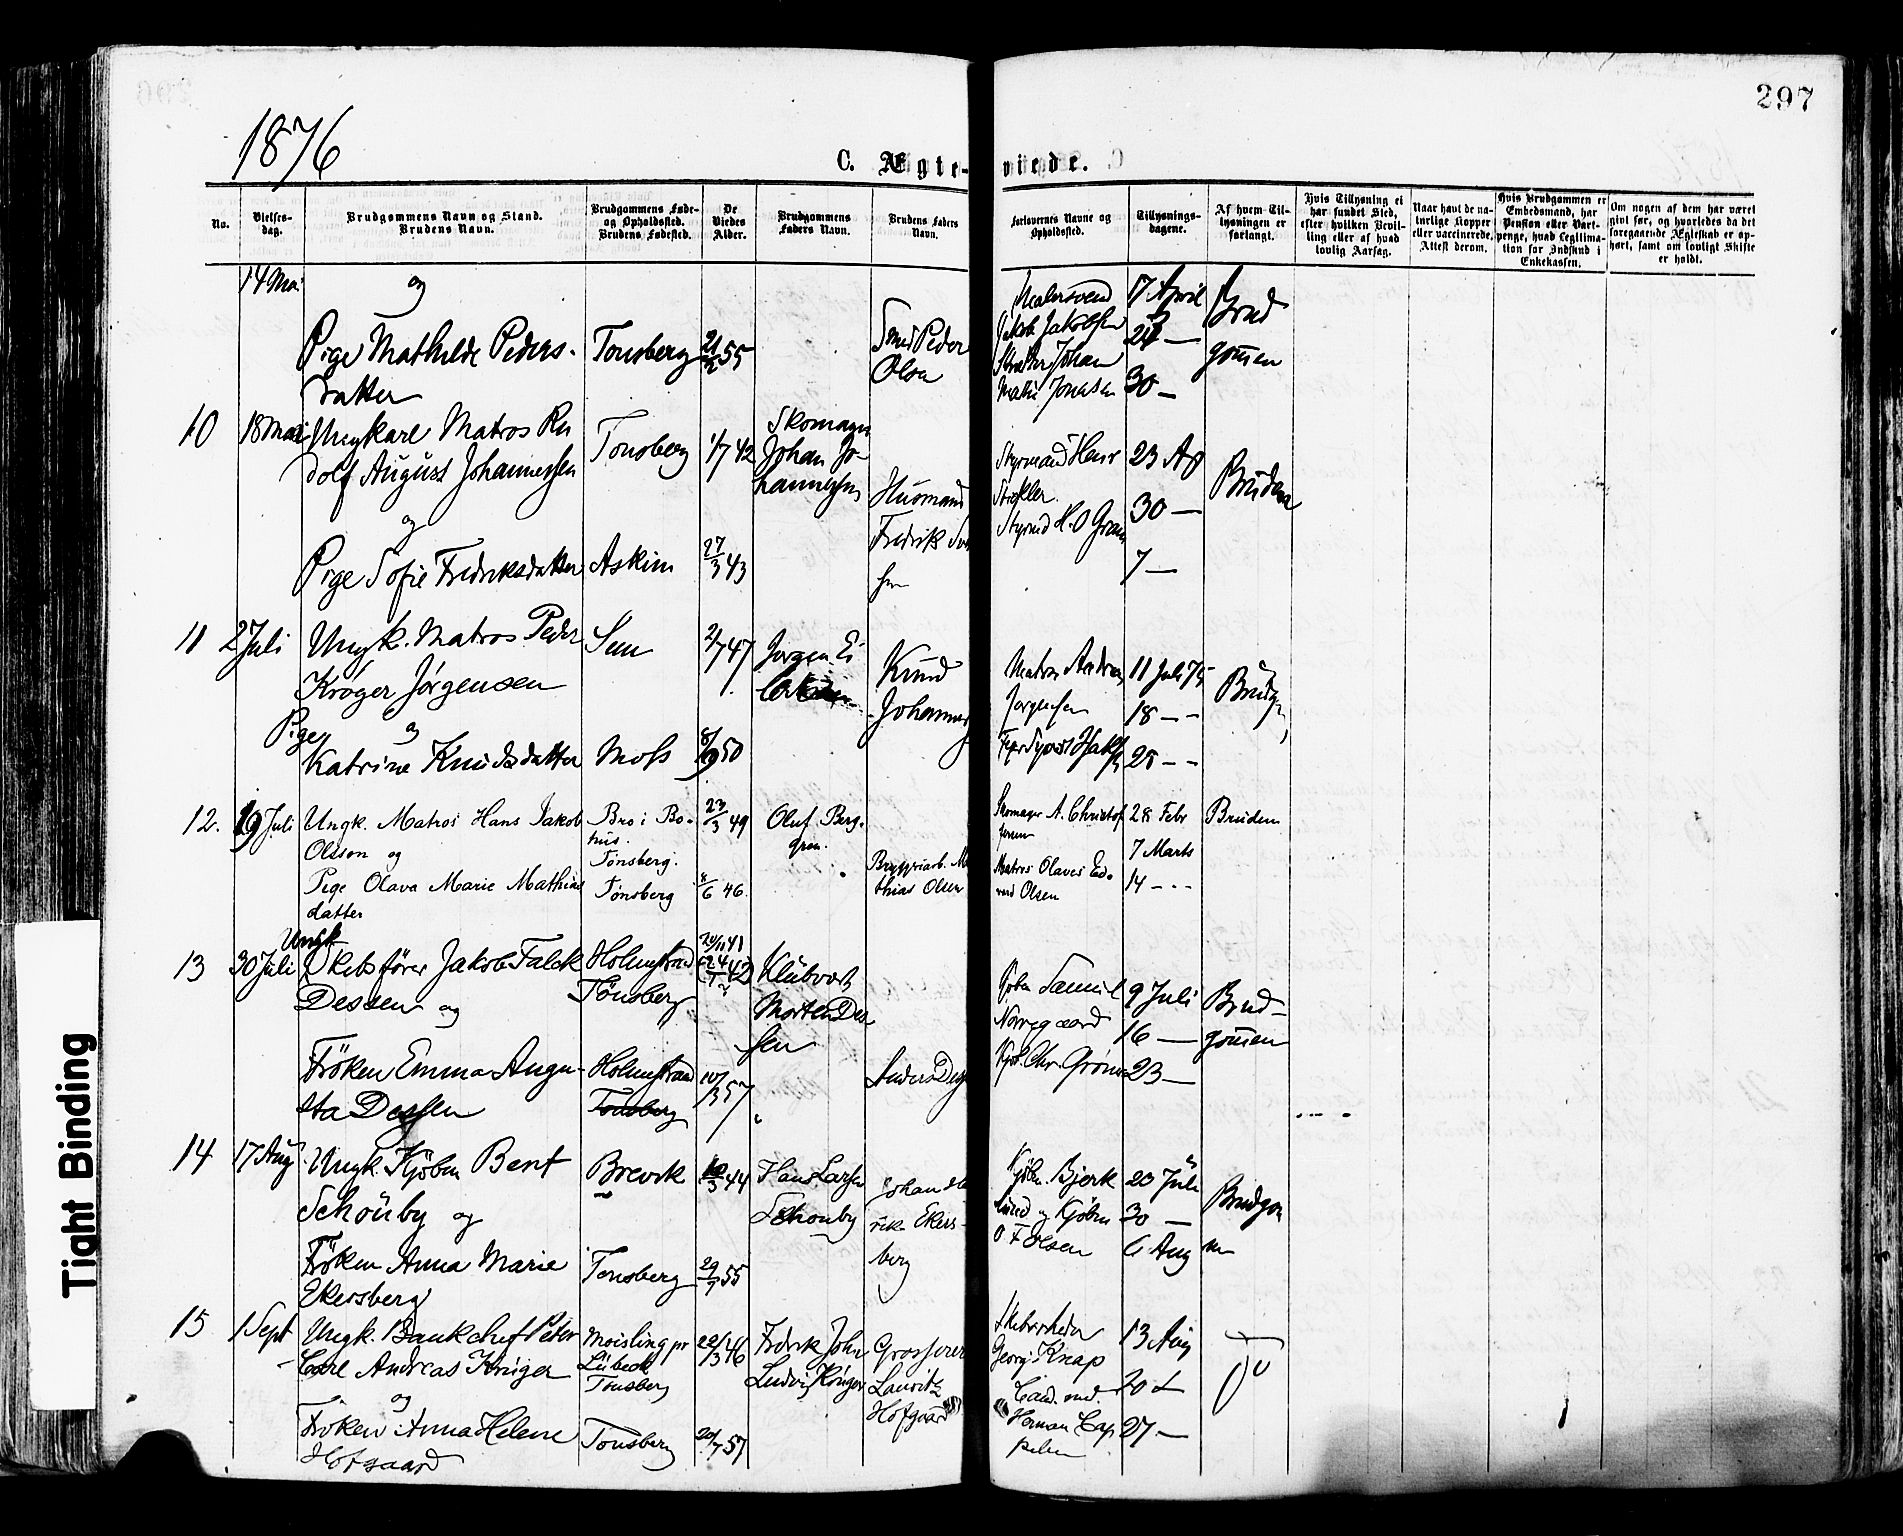 297
1876
C. Ægte-viede.
No.
Vielses-dag.
Brudgommens Navn og Stand.
Brudens Navn.
Brudgommens Føde-
og Opholdssted.
Brudens Fødested.
De
Viedes
Alder.
Brudgommens
Faders Navn.
Brudens Faders
Navn.
Forlovernes Navne og
Opholdssted.
Tillysnings-
dagene.
Af hvem Til-
lysningen er
forlangt.
Hvis Tillysning ei
har fundet Sted,
efter hvilken Bevil-
ling eller af hvad
lovlig Aarsag.
Naar havt de na-
turlige Kopper
eller vaccinerede,
Attest derom.
Hvis Brudgommen er
Embedsmand, har
Pension eller Vart-
penge, hvad Legitima-
tion for Indskud i
Enkekassen.
Om nogen af dem har været
givt før, og hvorledes da det
foregaaende Ægteskab er op-
hørt, samt om lovligt Skifte
er holdt.
14 Mai
og
Pige Mathilde Peders-
datter
Tonsberg
21/2 55
Smed Peder
Olsen
Malersvend
Jakob Jakobsen
Johan
Jonasen
17 April
24 —
30 —
Brud
gomen
10
18 Mai
Ungkarl Matros Ru
dolf August Johannessen
og
Pige Sofie Fredriksdatter
Tonsberg
Askim
1/7 42
27/3 43
Skomager
Johan Jo-
hannessen
Husmand
Fredrik
sen
Styrmand Henr
Stickler
Styrmd H. O Gran
23 Ap
30 —
7 —
Bruden
11
2 Juli
Ungk. Matros Peder
Krøger Jørgensen
og
Pige
Katrine Knudsdatter
Sem
Moss
2/7 47
8/9 50
Jørgen
Knud
Johannes
Matros Andrea
Jørgensen
11 Juli 75
18 — -
25 - -
Brudg
12.
19 Juli
Ungk. Matros Hans Jakob
Olsson og
Pige Olava Marie Mathias
datter
Bro i Bo-
hus.
Tønsberg.
Tønsberg
23/3 49
8/6 46.
Oluf Berg-
gren.
Bryggeriarb. Ma
thias Olsen
Skomager A. Christof
fersen
Matros Olaves Ed-
vard Olsen
28 Febr
7 Marts
14 - - -
Bruden
13
30 Juli
Ungk
Skibsfører Jakob Falck
Dessen og
Frøken Emma Augu-
sta Dessen
Holmestrand
Tönsberg
Holmestrand
Tonsberg
20/11 41
24/7 42
10/3 57
Klubvært
Morten Des-
sen
Anders Dess
Kjøbm Samuel
Norregaard
Kjøb. Chr. Grøn
9 Juli
16 —
23 —
Brud-
gomen
14
17 Aug
Ungk. Kjöbm Bent
Schönby og
Fröken Anna Marie
Ekersberg
Brevik
Tonsberg
10/3 44
29/7 55
Hans Larsen
Schonby
Johan
rik Ekers-
berg
Kjöbm. Bjerk
lund og Kjöbm
O F Olsen
23 Juli
30 —
6 Aug
Brudgom
en
15
1 Sept
Ungk. Bankchef Peter
Carl Andreas Krüger
og
Fröken Anna Helene
Hofgaard
Moisling pr
Lübeck
Tonsberg
Tonsberg
22/3 46
20/7 57
Fedrik John
Ludvig Krüger
Grosserer
Lauritz
Hofgaard
Skibsrheder
Georg Knap
Cand. med.
Herman Cap
pelen
13 Aug
20 —
27 —
Tight Binding